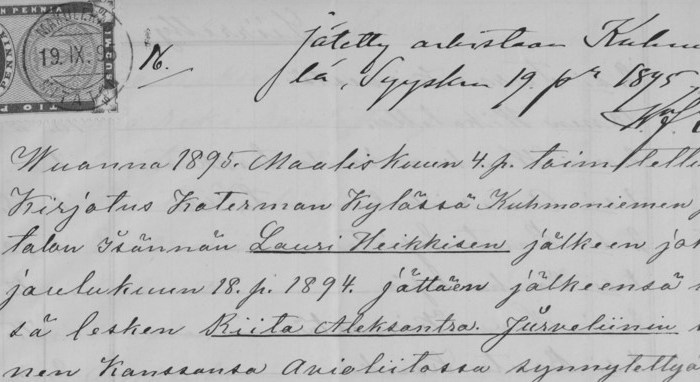 PENNIÄ
19. IX. 9
SUOMI
N.
Jätetty arkistoon Kuhmo
lä, Syyskuu 19. pnä 1895
Wuonna 1895. Maaliskuun 4. p. toimitettu
Kirjotus Katerman Kylässä Kuhmoniemen
talon Isännän Lauri Heikkisen jälkeen jo
joulukuun 18. p. 1894. jättäen jälkeensä
sä lesken Riita Aleksantra. Jürveliinin
nen Kanssansa Avioliitossa synnytettyä